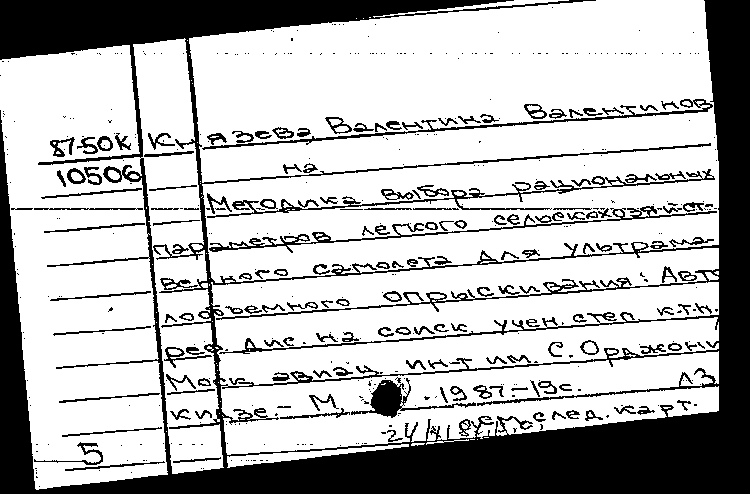 87-50К Князева, Валентина Валентинов
10506 на.
Методика выбора рациональных
параметров легкого сельскохозяйст-
венного самолета для ультрама-
лообъемного опрыскивания: Авто
реф. дис. на соиск. учен. степ. к.т.н.
Моск. авиац. ин-т им. С. Орджони
кидзе. - М, . 1987.-19с. ЛЗ
см. след. карт.
5